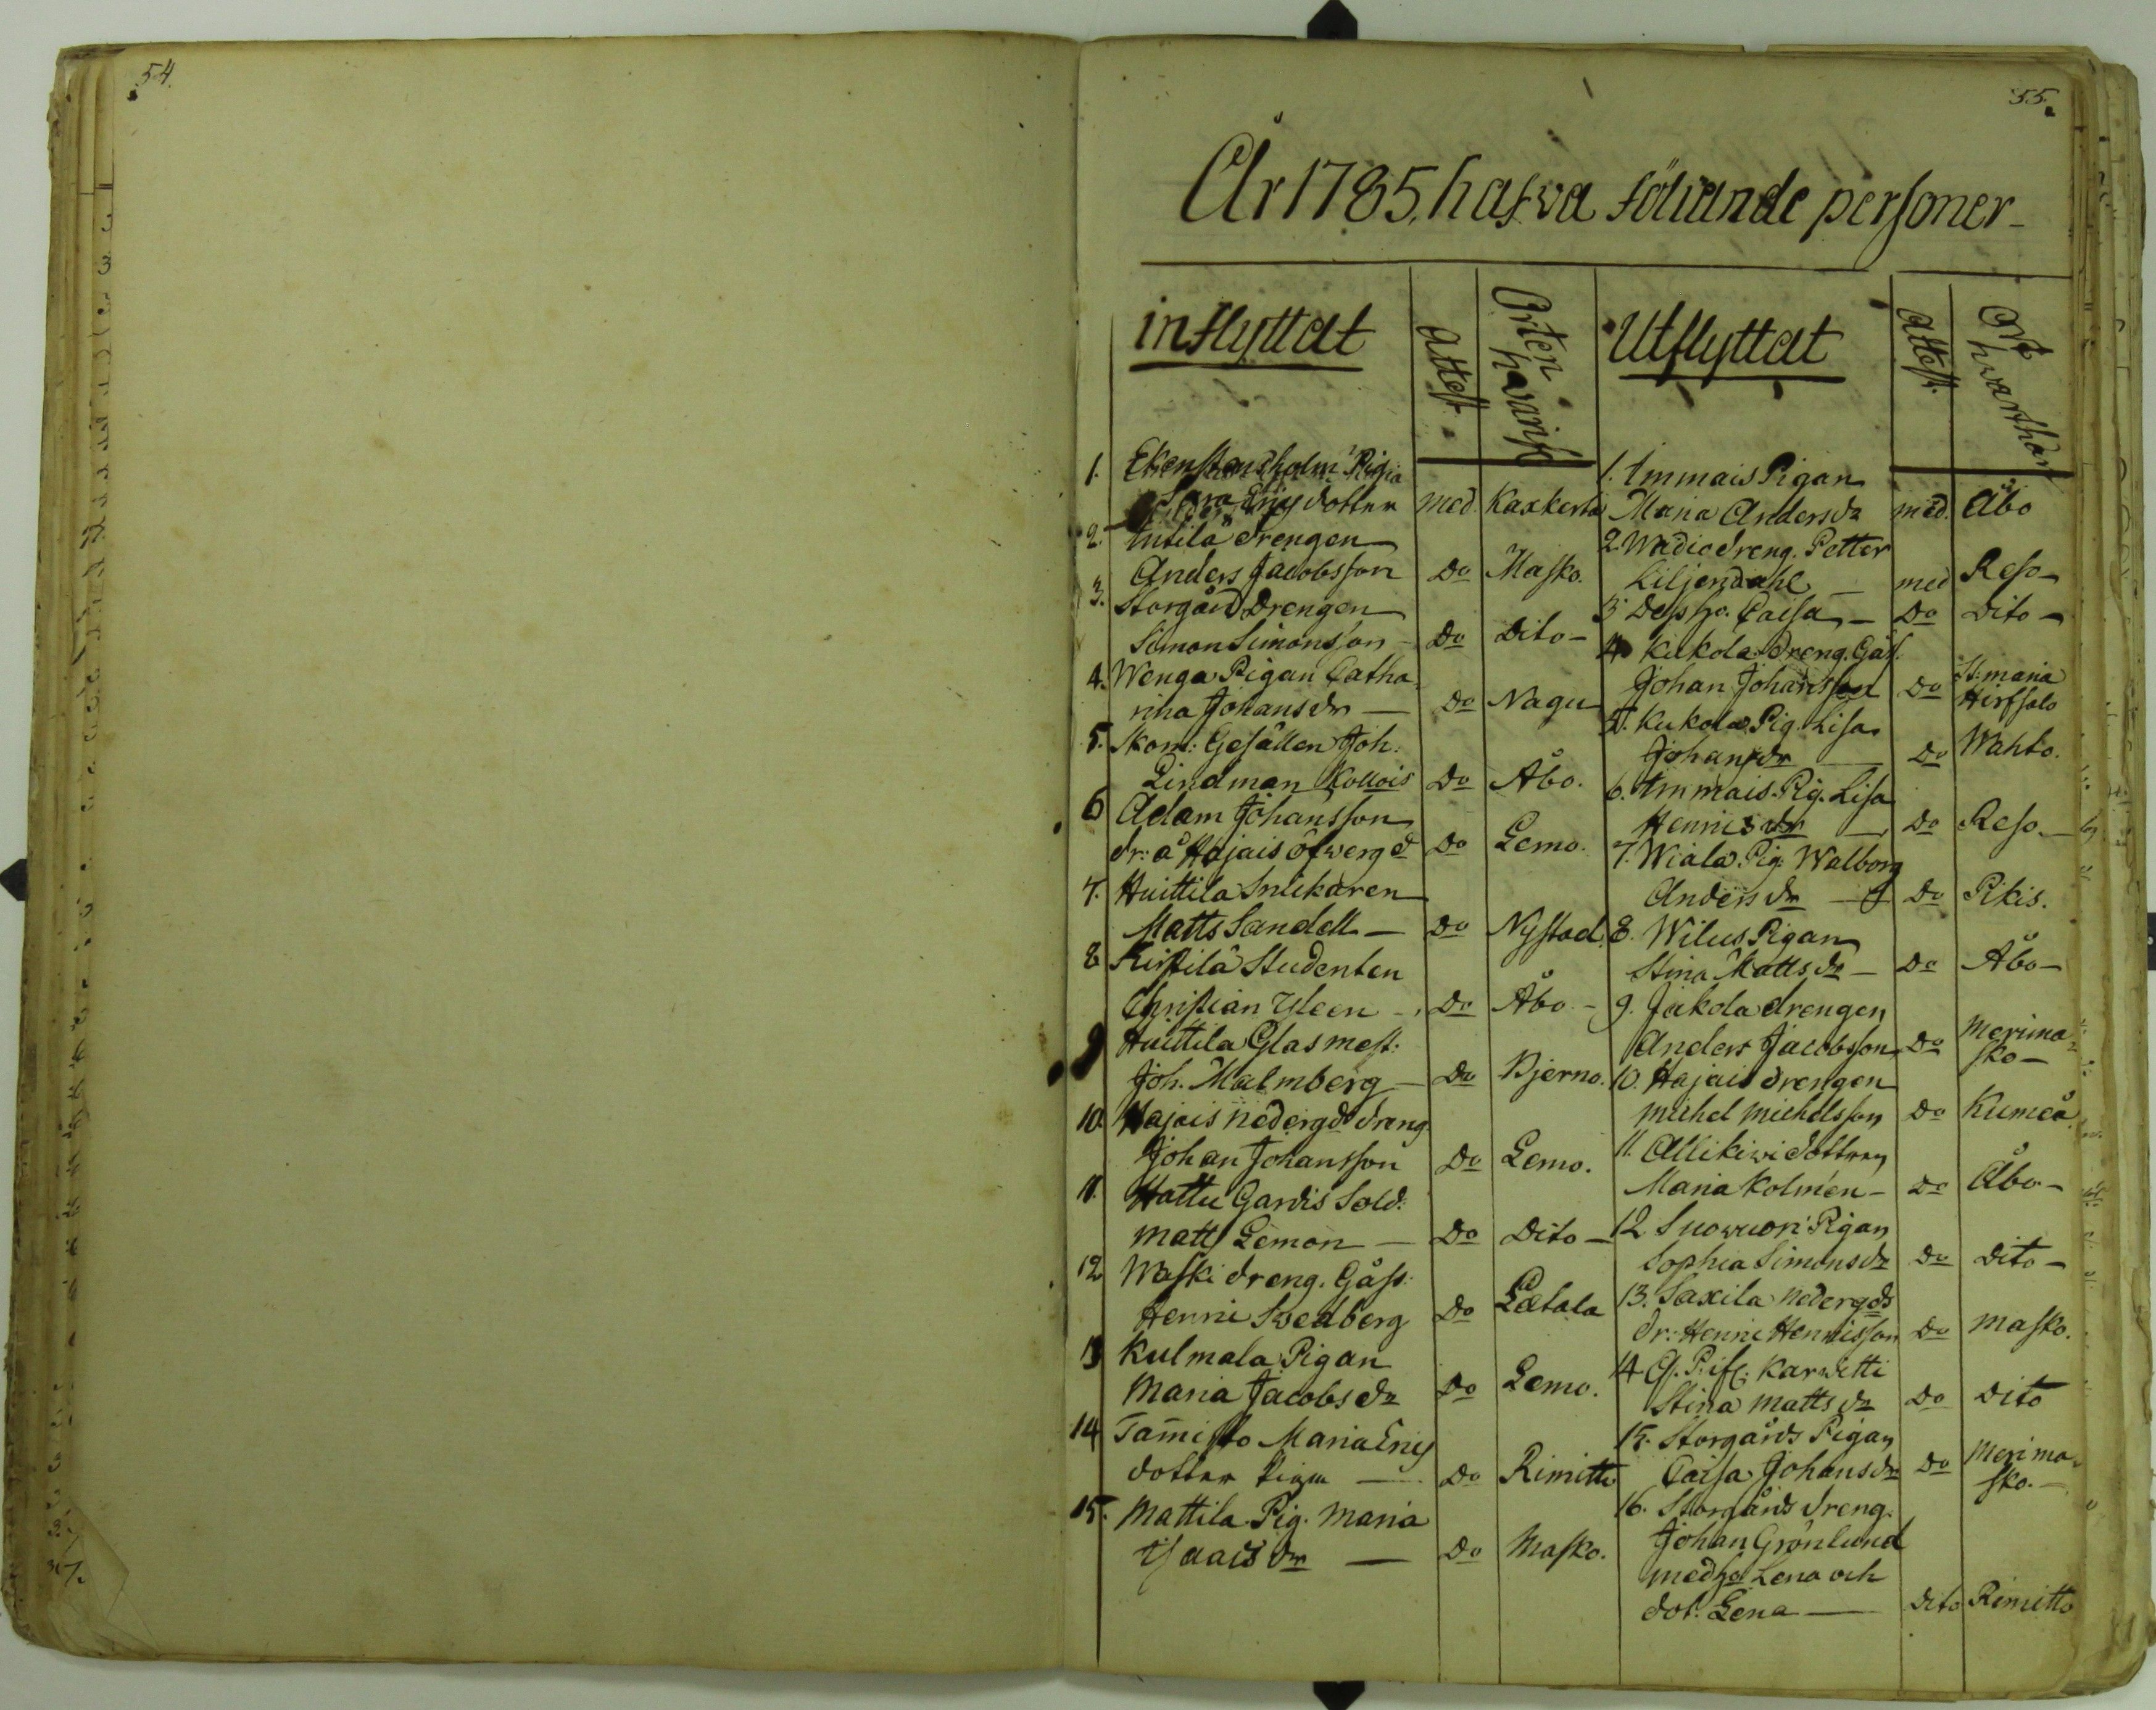 54.
55.
År 1785, hafva följande personer
inflyttat
Attest.
Orten hvarifr
Utflyttat
Attest.
Ort hwarthän
1. Ekenstamsholm Pigia
Sara Eriсs dotter med Kaxkerta
2. drengen
Anders Jacobsson Do Masko.
3. Storgård Drengen
Simon Simonsson Do Dito
4. Wenga Pigan Catha
rina Johans dr Do Nagu
5. Skom: Gesällen Joh:
Lindman Kollois Do Åbo.
6 Adam Johansson
dr: å Hajais öfwerg d Do Lemo.
7. Huittila Snickaren
Matts Sandell Do Nystad.
8 Ristila Studenten
Christian Yleen Do Åbo
9 Huittila Glasmest:
Joh. Malmberg Do Bjerno.
10. Hajais nedergds dreng
Johan Johansson Do Lemo.
11. Hattu Gardis Sold:
Matts Lemon Do Dito
12 Waski dreng. Gåss:
Henric Swedberg Do Letala
13 Kulmala Pigan
Maria Jacobs dr Do Lemo.
14 Tamisto Maria Erics
dotter Pigan Do Rimitto
15. Mattila Pig. Maria
Isaacs dr Do Masko.
1. Immais Pigan
Maria Anders dr med. Åbo
2. Wadic dreng. Petter
Liljendahl med Reso
3. Dess ho. Caisa Do Dito
4 Kukola Dreng. Gåss.
Johan Johansson Do St: maria Hirfsalo
5. Kukola Pig. Lisa
Johans dr Do Wahto.
6. Immais Pig. Lisa
Henrics dr Do Reso
7. Wiala Pig. Walborg
Anders dr Do Pikis.
8. Wilus Pigan
Stina Matts dr Do Åbo
9. Jakola drengen
Anders Jacobsson Do Merima
sko
10. Hajais drengen
Michel Michelsson Do Kumeå
11. Allikiwi dottren
Maria Kolmen Do Åbo
12 Suowuori Pigan
Sophia Simons dr Do Dito
13. Saxila nedergds
dr: Henric Henricsson Do Masko.
14 Karwetti
Stina Matts dr Do Dito
15. Storgårds Pigan
Caisa Johans dr Do Merima
sko.
16. Storgårds dreng.
Johan Grönlund
med ho Lena och
dot. Lena Dito Rimitto